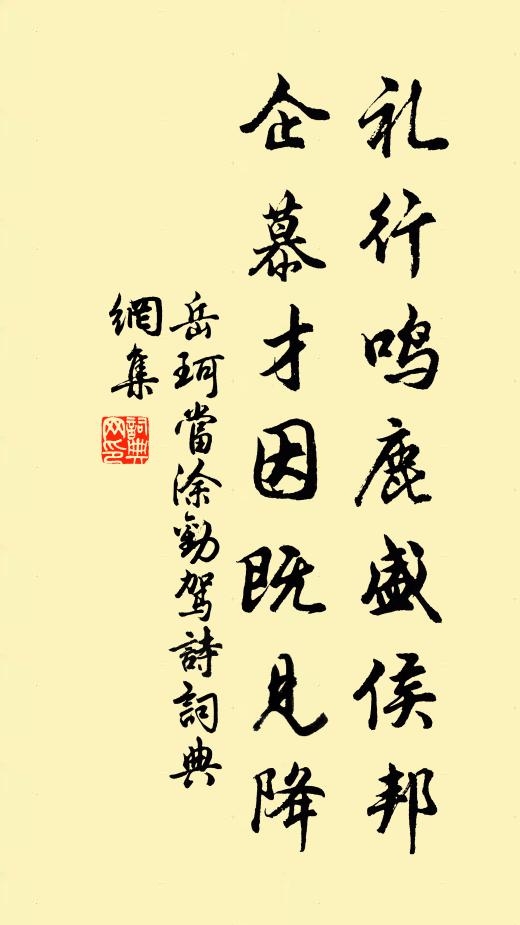 礼行鸣鹿盛侯邦
企慕才因既见降
岳珂當涂勸驾詩詞典
網集
詞典
网印